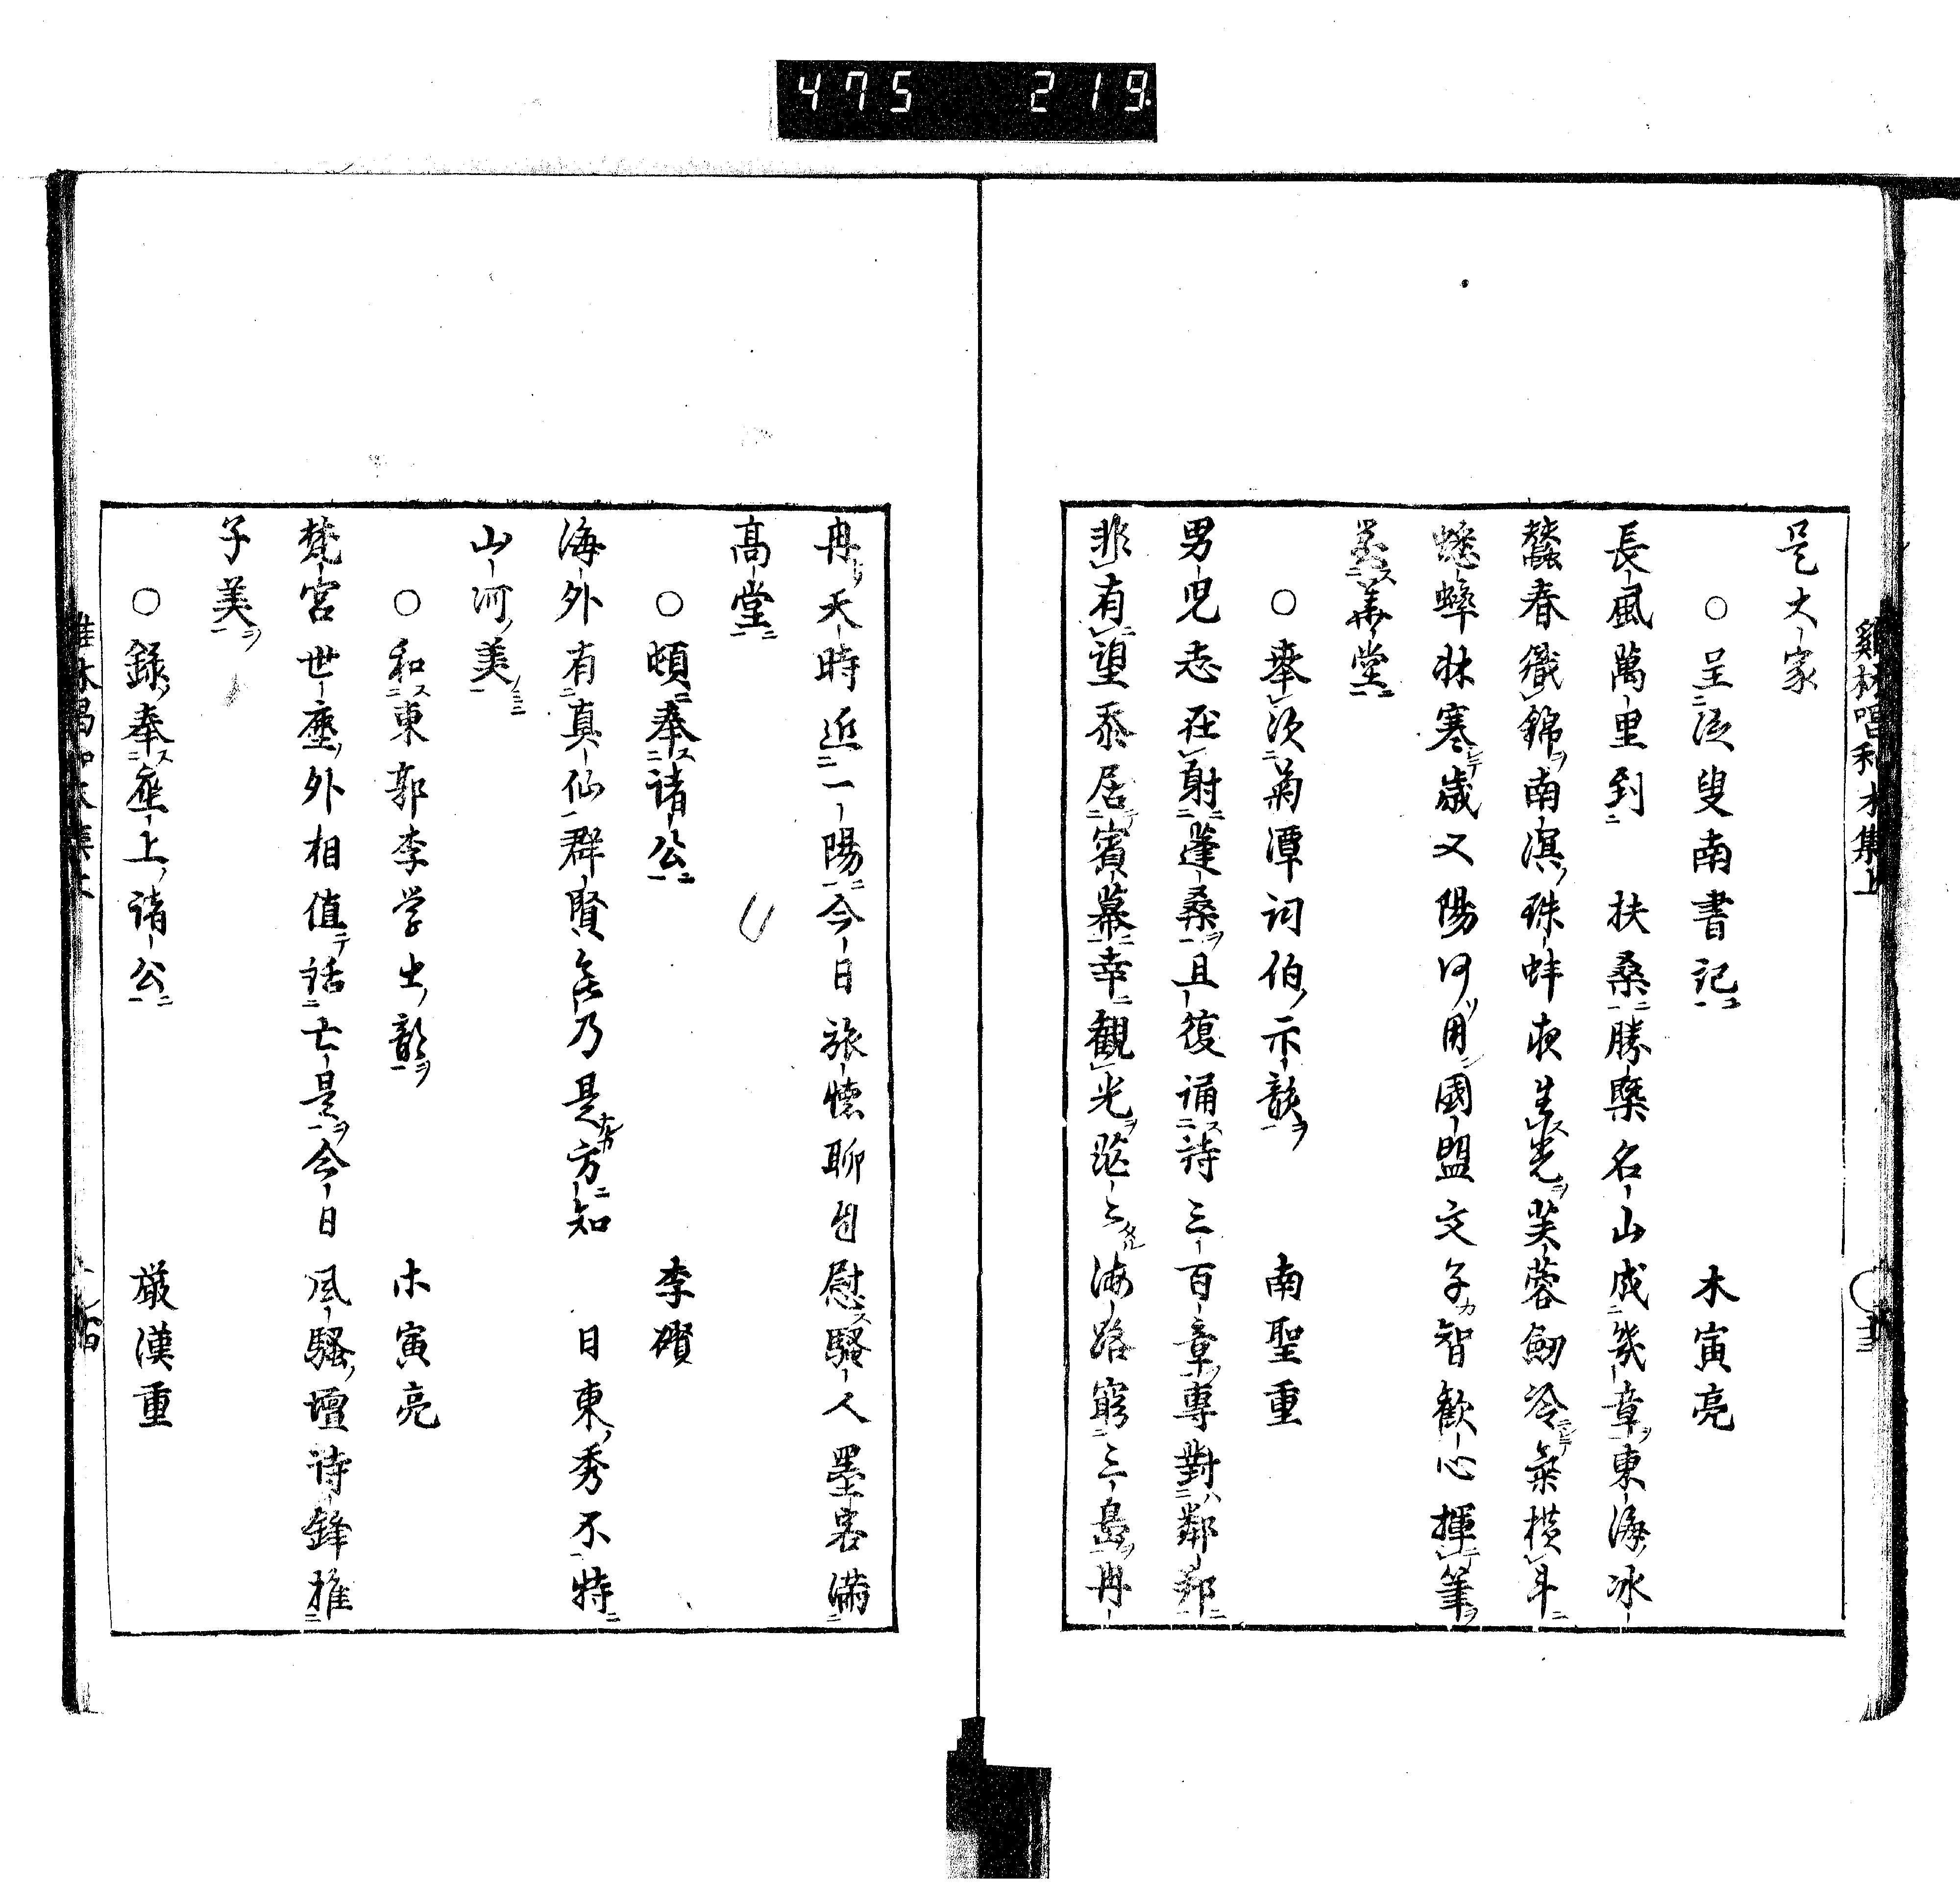 475 219
雞林唱和木集上
是大家
○呈泛叟南書記 木寅亮
長風萬里到 扶桑勝槩名山成幾章東海氷
蠶春織錦南溟珠蚌夜生光芙蓉劔冷氣横斗
蟋蟀牀寒歳又陽何用國盟交子智歡心揮筆
華堂
○奉次菊潭詞伯示韻 南聖重
男児志在射蓬桑且復誦詩三百章專對鄰邦
非有望忝居賓幕幸觀光茫々海路窮三島冉
冉天時近一陽今日旅懐聊自慰騒人墨客滿
高堂
○頓奉諸公 李礥
海外有真仙群賢無乃是方知 日東秀不特
山河美
○和東郭李学士韻 木寅亮
梵宮世塵外相値話亡是今日風騒壇詩鋒推
子美
○録奉座上諸公 嚴漢重